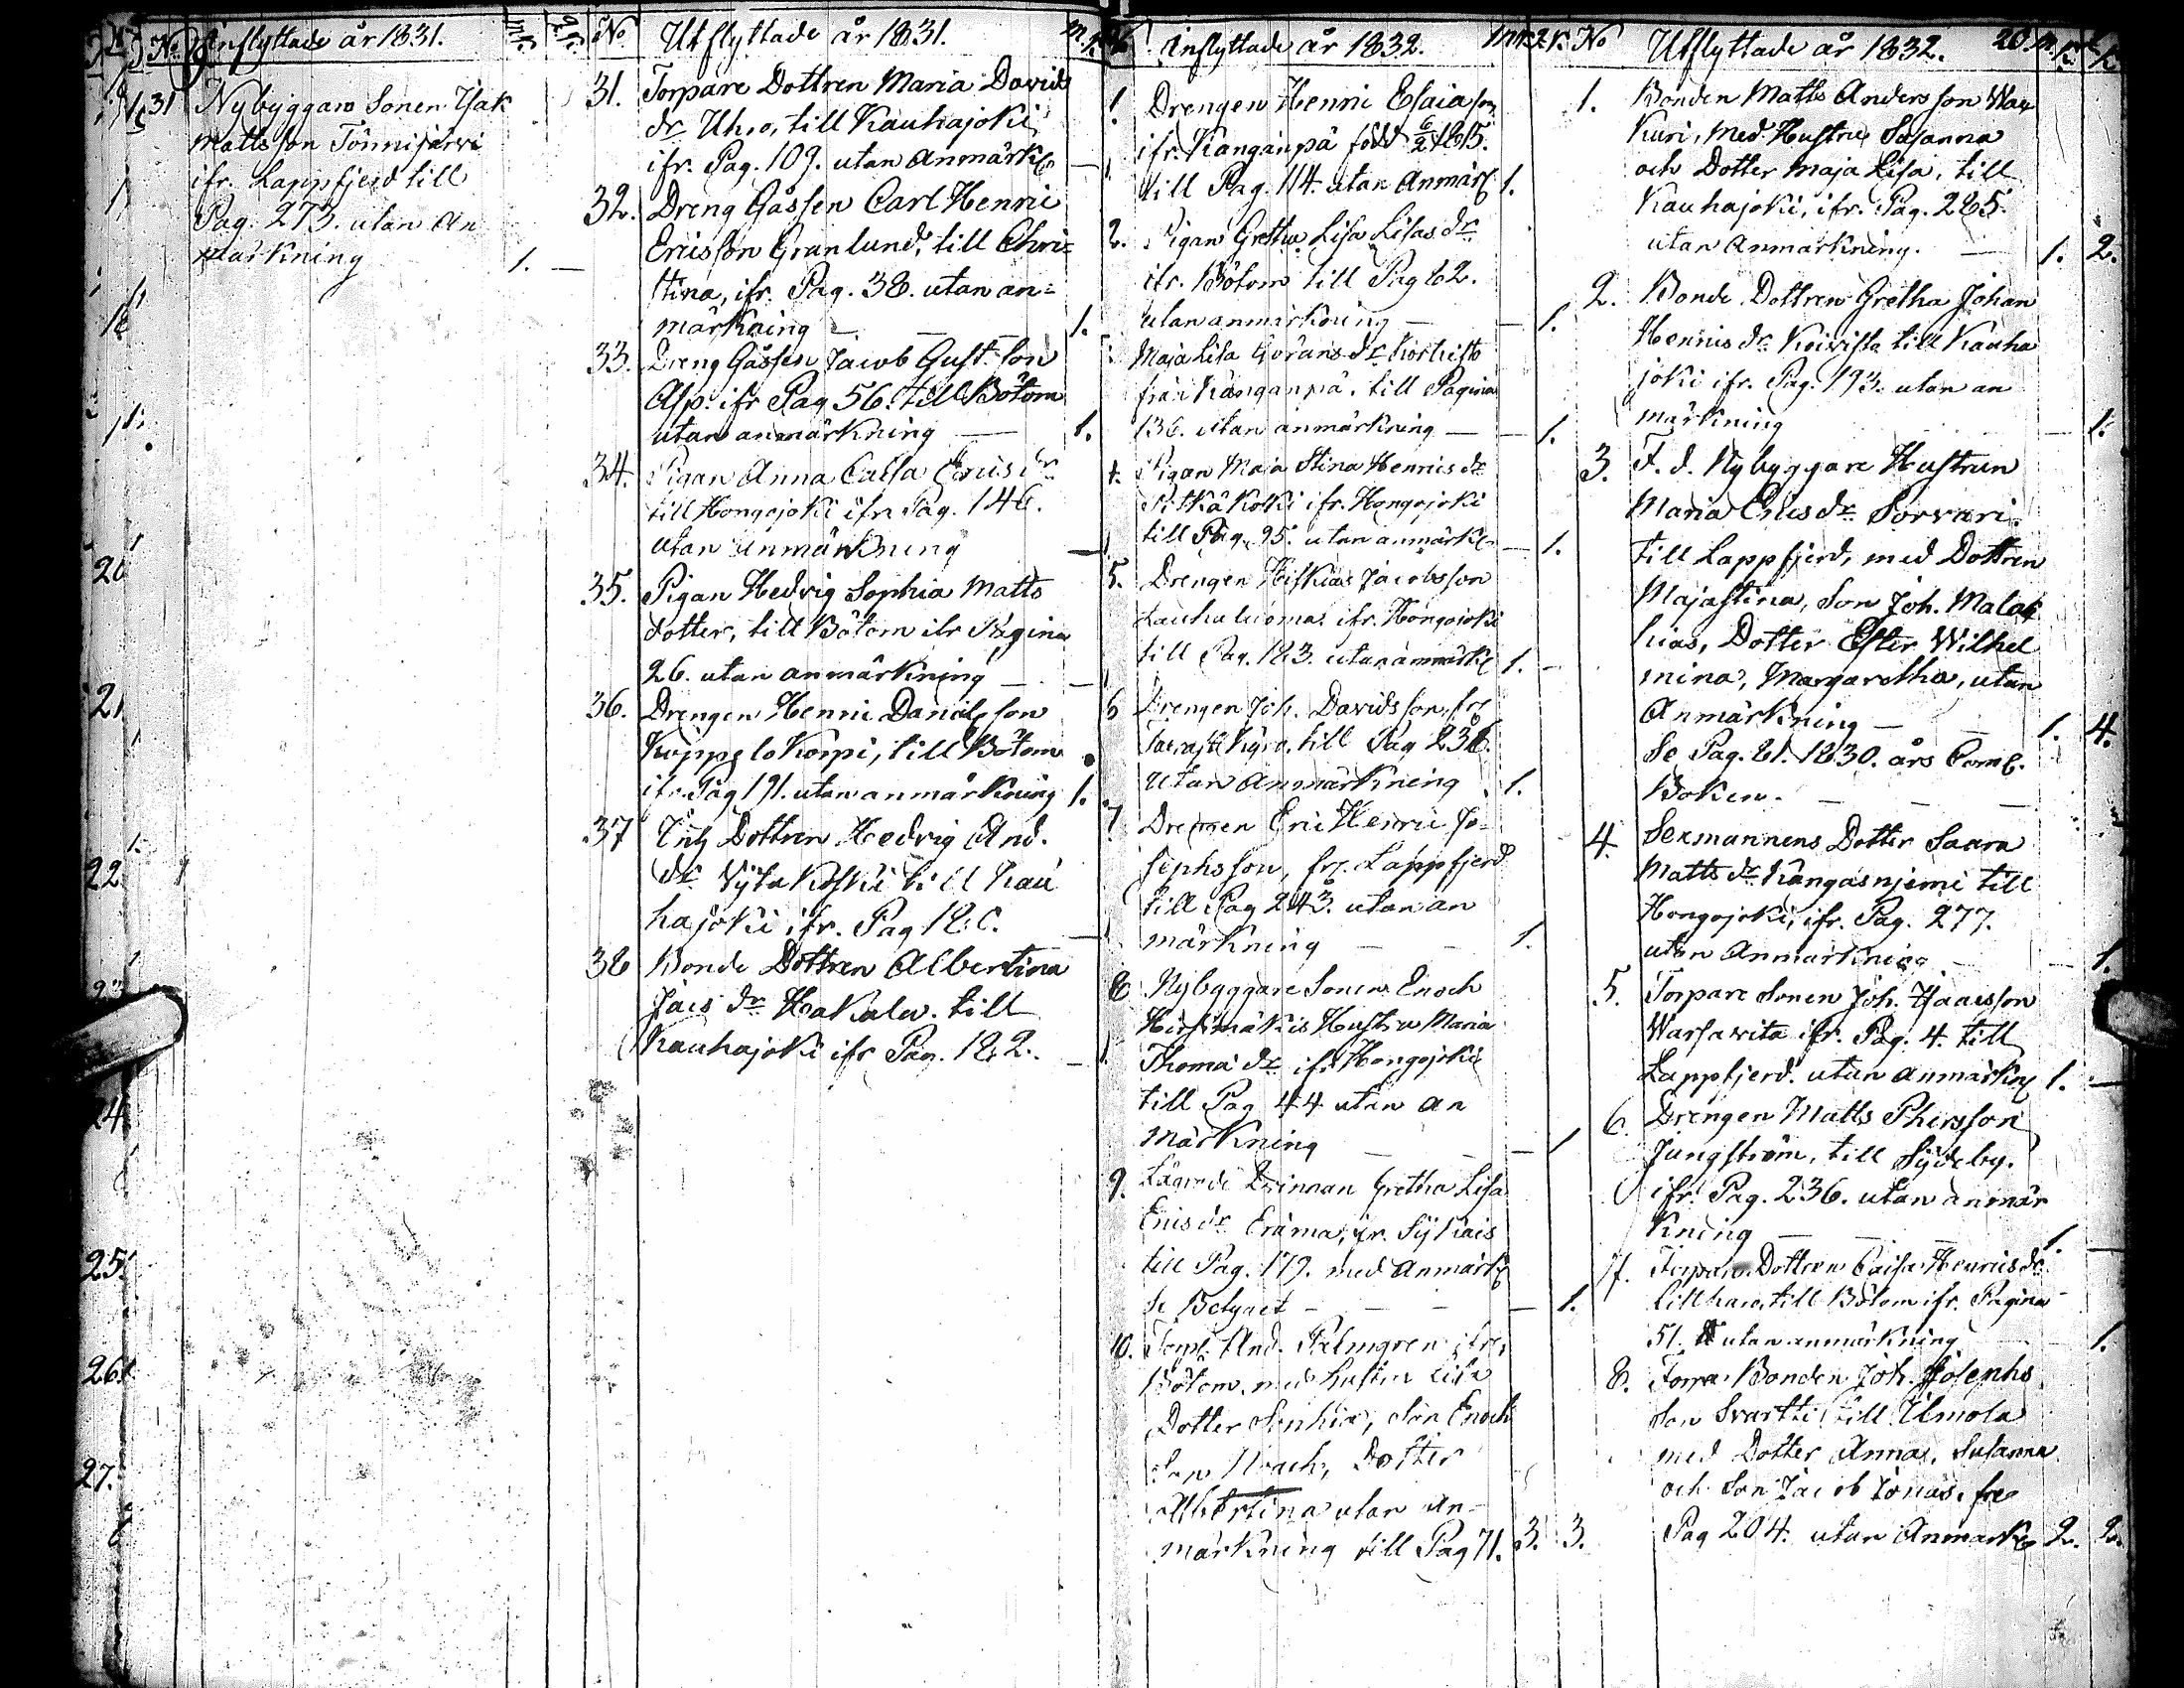 No Inflyttade år 1831. mk. qk.
31 Nybyggare Sonen Isak
Mattsson Tönnijärvi
ifr. Lappfjerd till
Pag. 273. utan an
märkning 1. —
No Utflyttade år 1831.
31. Torpare Dottren Maria Davids
dr Uhro, till Kauhajoki
ifr. Pag. 109. utan anmärk
32. Dreng Gåssen Carl Henric
Ericsson Granlund, till Chri=
stina, ifr. Pag. 38. utan an=
märkning — — — 1.
33. Dreng Gåssen Jacob Gust. son
Asp. ifr Pag 56. till Bötom
utan anmärkning — 1.
34. Pigan Anna Caisa Ericsdr
till Hongojoki ifr. Pag. 146.
utan anmärkning
35. Pigan Hedvig Sophia Matts
dotter, till Bötom ifr Pagina
26. utan anmärkning —
36. Drengen Henric Danielsson
Koppelokorpi, till Bötom
ifr. Pag 191. utan anmärkning 1.
37 Dottren Hedvig And.
dr till Kau
hajoki ifr. Pag
38 Bonde Dottren Albertina
Jacs dr Hakala. till
Kauhajoki ifr Pag. 182.
Inflyttade år 1832. mk qk.
1. Drengen Henric Esaiasson
ifr. Kanganpä född 6/2 1815.
till Pag. 114. utan Anmärk 1.
2. Pigan Gretha Lisa Lisas dr
ifr. Bötom till Pag 62.
utan anmärkning — — 1.
Maja Lisa Görans dr
från Kanganpä. till Pagina
136. utan anmärkning — — 1.
4. Pigan Maja Stina Henrics dr
Pitkäkoski ifr. Hongojoki
till Pag. 95. utan anmärk — 1.
5. Drengen Hiskias Jacobsson
Lauhaluoma. ifr. Hongojoki
till Pag. 183. utan anmärk 1. —
6 Drengen Joh. Davidsson, fr
till Pag 236.
utan anmärkning 1.
7 Drengen Eric Henric Jo=
sephsson, fr. Lappfjerd
till Pag 243. utan an
märkning — — 1.
8 Nybyggare Sonen Enoch
Hirsimäkis Hustru Maria
Thomas dr ifr Hongojoki
till Pag 44 utan an
märkning — — — 1
9. Gretha Lisa
Erics dr fr.
till Pag. 179. med anmärk
se Betyget — — — — 1.
10. And. Palmgren ifr
Bötom, med hustru Lisa
Dotter Sophia, Son Enoch
Son Noach, Dotter
Albertina utan an-
märkning till Pag 71. 3. 3.
No Utflyttade år 1832. 20
1. Bonden Matts Andersson
Kuri, med Hustru Susanna
och Dotter Maja Lisa, till
Kauhajoki, ifr. Pag. 285.
utan Anmärkning. — 1. 2.
2. Bonde Dottren Gretha Johan
Henrics dr Koivista till Kauha
joki ifr. Pag. 193. utan an
märkning — 1.
3. F. d. Nybyggare Hustrun
Maria Erics dr Sorvari.
till Lappfjerd, med Dottren
Majastina, Son Joh. Malak
hias, Dotter Ester Wilhel
mina, Margaretha, utan
Anmärkning — — 1. 4.
Se Pag. 61. 1830. års Com.
Boken. — — —
4. Sexmannens Dotter Saara
Matts dr Kangasnjemi till
Hongojoki, ifr. Pag. 277.
utan Anmärkning — — 1.
5. Torpare Sonen Joh. Isaacsson
Warsawita ifr. Pag. 4. till
Lappfjerd. utan anmärkn 1. —
6. Drengen Matts Phersson
Jungström, till Sydeby.
ifr. Pag. 236. utan anmär
kning — — — 1. —
7. Torpare Dottren Caisa Henrics dr
till Bötom ifr. Pagina
51. utan anmärkning — 1.
8. Bonden Joh. Josephs
son Svartti, till Ilmola
med Dotter Anna, Susanna
och Son Jacob Jonas, fr
Pag 204. utan Anmärk 2. 2.
20
21
22
24
25.
26.
27.